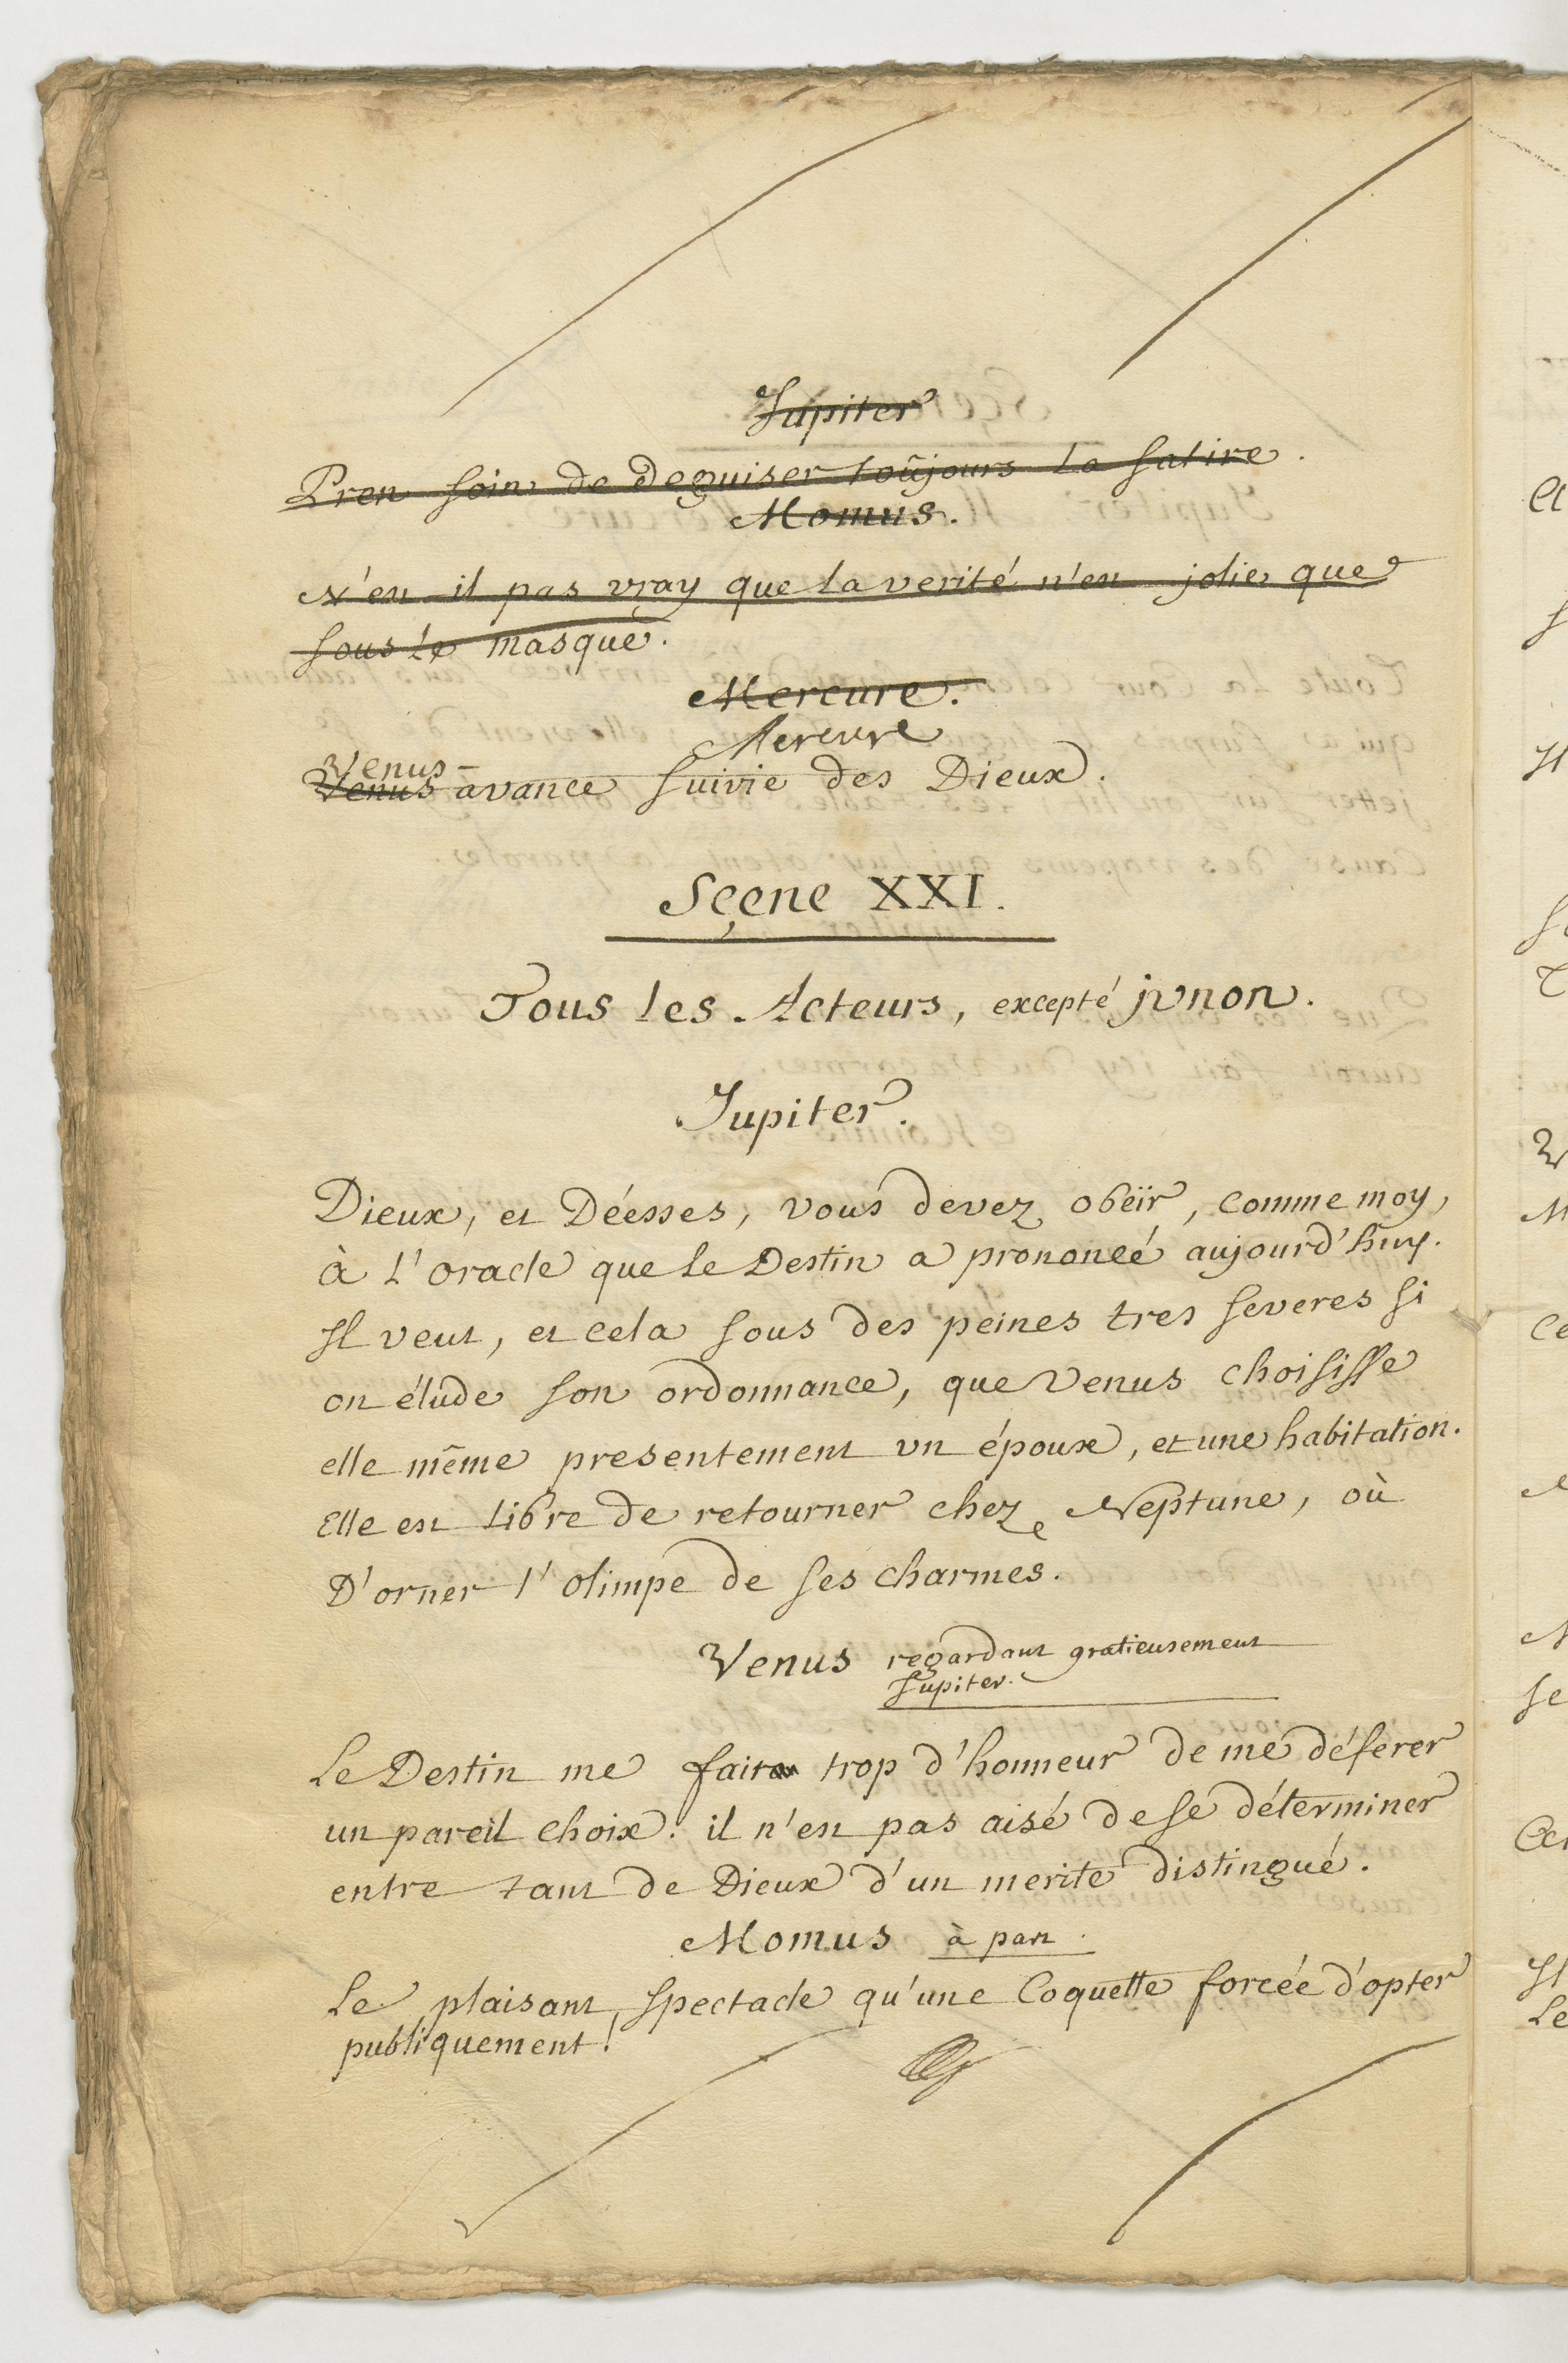 Jupiter
Pren soin de deguiser toûjours la satire.
Momus.
N'est il pas vray que la verité n'est jolie que
sous le masque.
Mercure.
Mercure
Venus
Venus avance suivie des Dieux.
Sçene XXI.
Tous les Acteurs, excepté junon.
Jupiter.
Dieux, et Déesses, vous devez obéïr, comme moy,
à l'oracle que le Destin a prononcé aujourd'huy.
Il veut, et cela sous des peines tres severes si
on élude son ordonnance, que Venus choisisse
elle même presentement un époux, et une habitation.
Elle est libre de retourner chez Neptune, où
D'orner l'olimpe de ses charmes.
Venus regardant gratieusement
Jupiter.
Le Destin me fait trop d'honneur de me déferer
un pareil choix. il n'est pas aisé de se déterminer
entre tant de Dieux d'un merite distingué.
Momus à part.
Le plaisant spectacle qu'une Coquette forcée d'opter
publiquement!